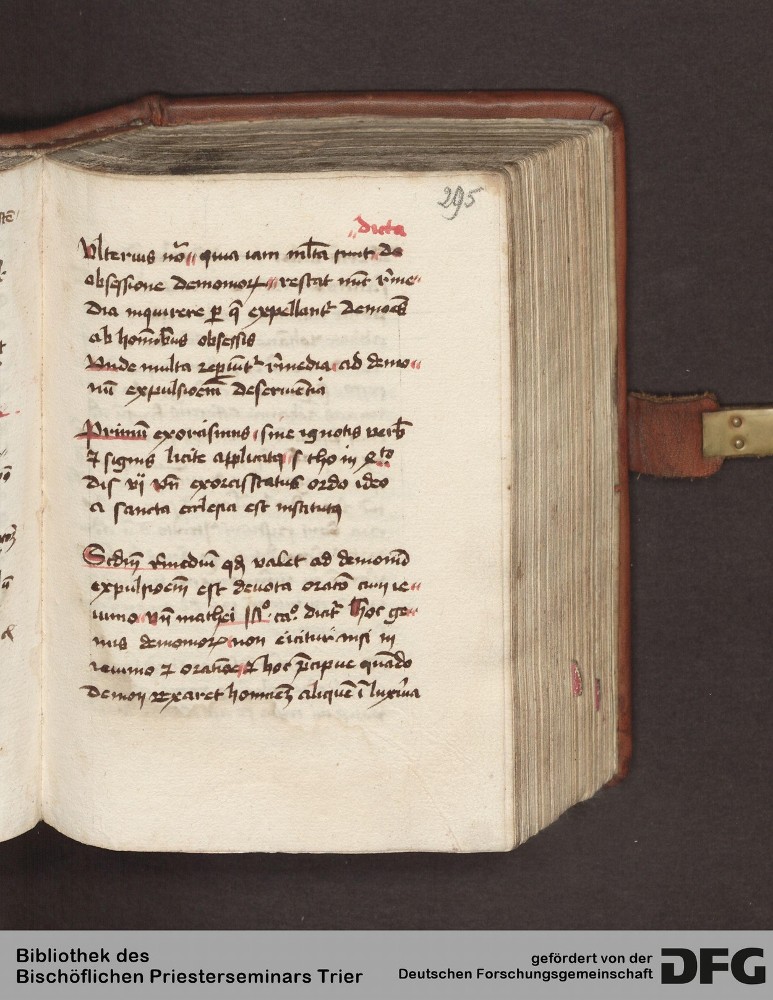 295
dicta
Ulterius nō quia iam mlta sunt de
obsessione demonioꝝ restat nūc reme
dia inquirere ꝑ q̄ expellantr demōes
ab hominibus obsessis
Unde multa repiūtr remedia ad demo
nū expulsioem deservientia
Primū exorcismus sine ignotis verb
⁊ signis licite applicatꝰ s tho in qto
dis vij vn̄ exorcistatus ordo ideo
a sancta ecclesia est institutꝰ
Scdm remediū qd valet ad demonū
expulsioem est devota oratō cum ie
iunio vn̄ mathei ca° dicitr hoc ge
nus demonioꝝ non eicitur nisi in
ieiunio ⁊ oratiōe ⁊ hoc p̄cipue quādo
demon vexaret hominem aliquē ī luxuria
Bibliothek des
Bischöflichen Priesterseminars Trier
gefördert von der
Deutschen Forschungsgemeinschaft
DFG